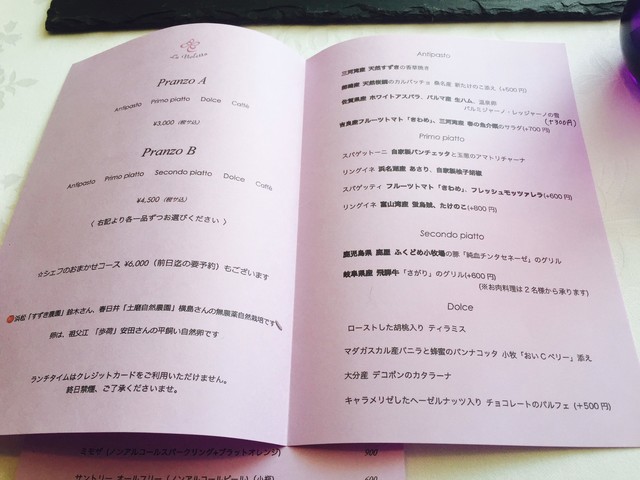 Pranzo A
Antipasto Primo piatto Dolce Caffè
¥3,000 (税サ込)
Pranzo B
Antipasto Primo piatto Secondo piatto Dolce Caffè
¥4,500 (税サ込)
〈 右記より各一品ずつお選びください 〉
☆シェフのおまかせコース ¥6,000(前日迄の要予約)もございます
浜松「すずき農園」鈴木さん、春日井「土磨自然農園」横島さんの無施薬自然栽培です
卵は、祖父江「歩荷」安田さんの平飼い自然卵です
ランチタイムはクレジットカードをご利用いただけません。
終日禁煙、ご了承くださいませ。
Antipasto
三河湾産 天然すずきの香草焼き
のカルパッチョ 桑名産 新たけのこ添え (+500円)
佐賀県産 ホワイトアスパラ、パルマ産 生ハム、温泉卵
パルミジャーノ・レッジャーノの雪
(+300円)
奈良産フルーツトマト「きわめ」、三河湾産 春の魚介類のサラダ(+700円)
Primo piatto
スパゲットーニ 自家製パンチェッタと玉葱のアマトリチャーナ
リングイネ 浜名湖産 あさり、自家製柚子胡椒
スパゲッティ フルーツトマト「きわめ」、フレッシュモッツァレラ(+600円)
リングイネ 富山湾産 蛍烏賊、たけのこ(+800円)
Secondo piatto
鹿児島県 鹿屋 ふくどめ小牧場の豚「純血サ​ンタセネーゼ」のグリル
岐阜県産 飛騨牛「さがり」のグリル(+600円)
(※お肉料理は2名様から承ります)
Dolce
ローストした胡桃入り ティラミス
マダガスカル産バニラと蜂蜜のパンナコッタ 小牧「おいCベリー」添え
大分産 デコポンのカタラーナ
キャラメリゼしたヘーゼルナッツ入り チョコレートのパルフェ (+500円)
ミモザ (ノンアルコールスパークリング+ブラッドオレンジ) 900
サントリー オールフリー (ノンアルコールビール) (小瓶) 600